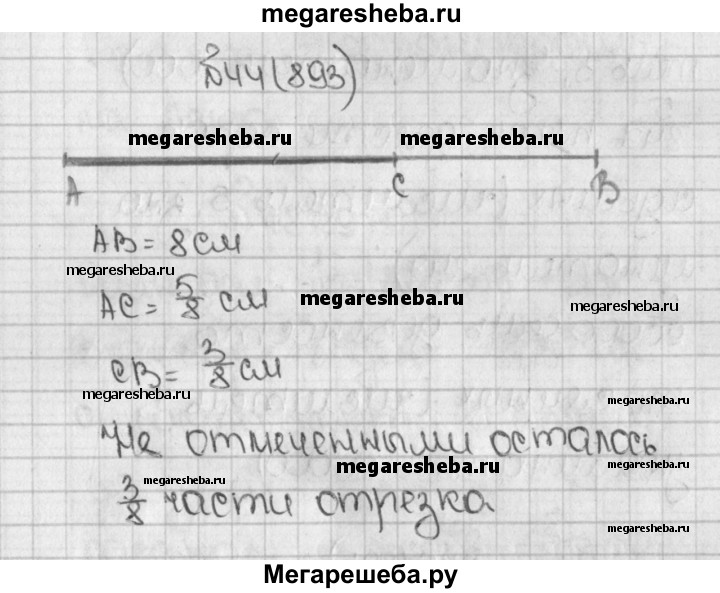 megaresheba.ru
№44(893)
megaresheba.ru megaresheba.ru
A C B
AB = 8 см
megaresheba.ru
AC = 5/8 см megaresheba.ru megaresheba.ru
CB = 3/8 см
megaresheba.ru megaresheba.ru
Не отмеченными осталось
megaresheba.ru megaresheba.ru megaresheba.ru
3/8 части отрезка
megaresheba.ru
Мегарешеба.ру